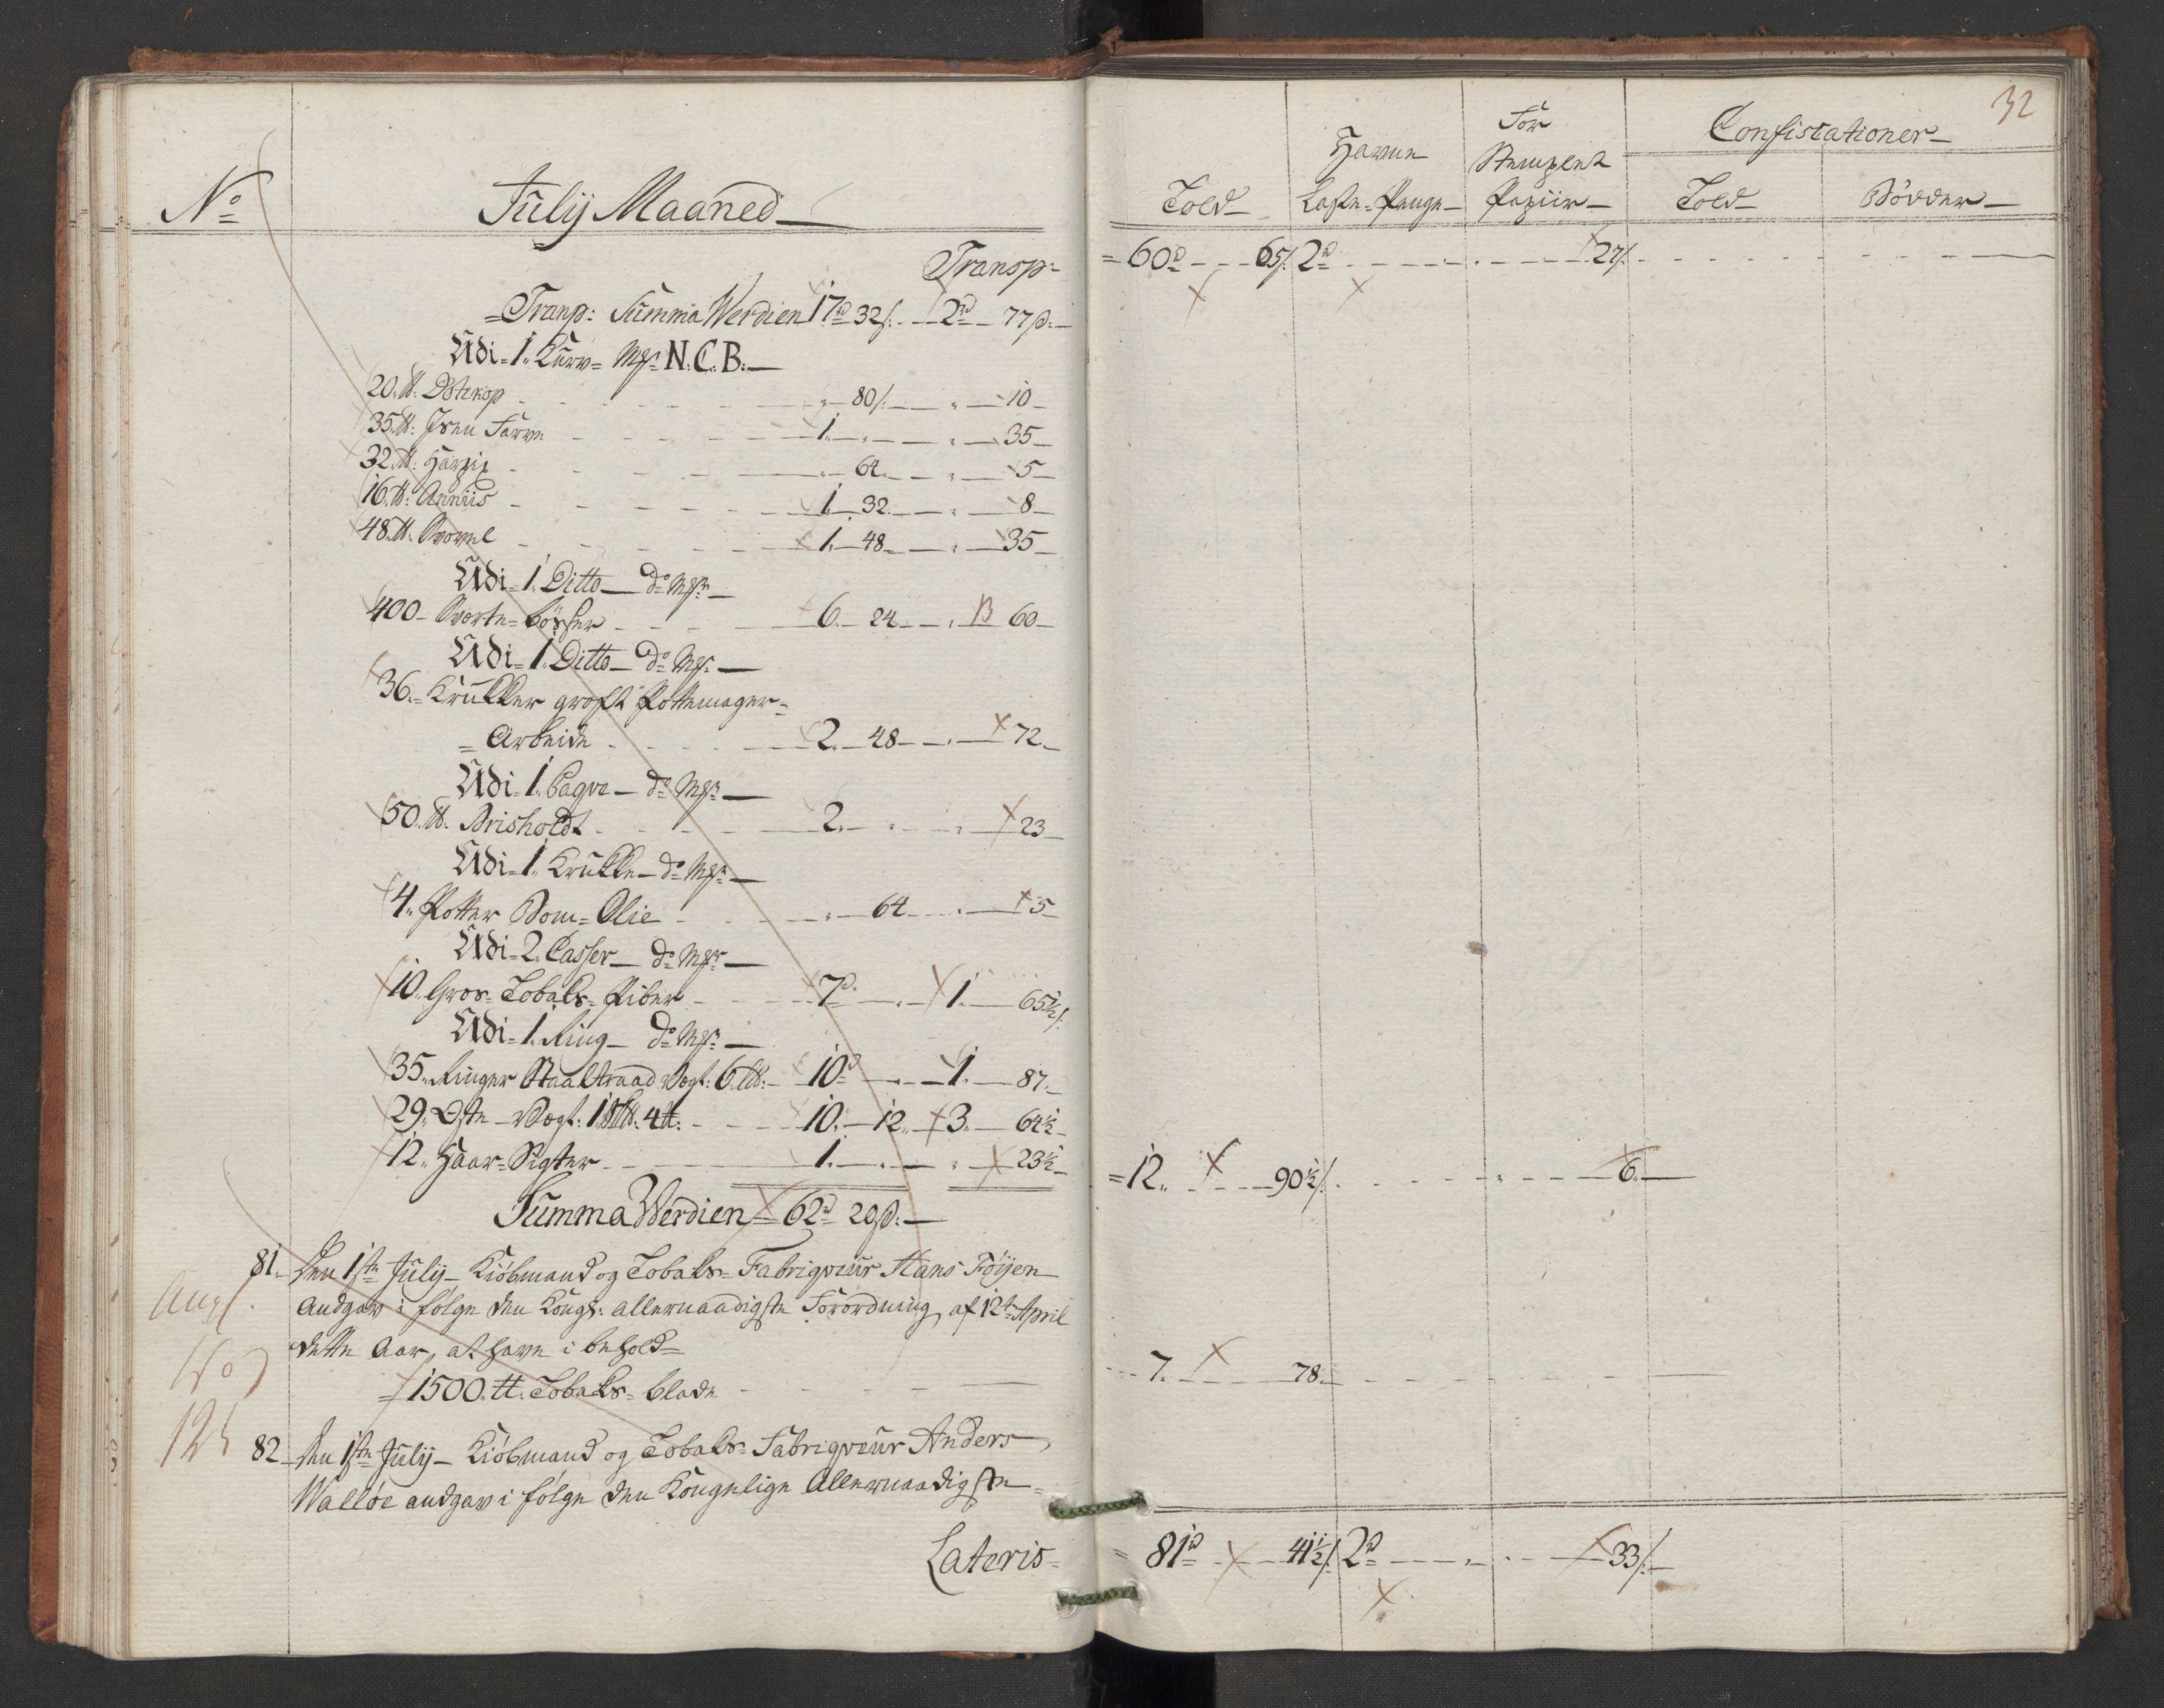 No
Julij Maaned
Transp:
Transp: Summa Werdien 17rd 32s. 2rd 77s.
Udi 1 Kurv Mgl N.C.B.
20 tt. Dötekop 80s. 10
35 tt. Jsen Farve 1. 35
32 tt. Harpix 64 5
16 tt. Anniis 1. 32 8
48 tt. Svovel 1. 48 35
Udi 1 Ditto do Mgl
400 Sværte bösser 6. 24 60
Udi 1 Ditto do Mgl
36 Krukker groft Pottemager
Arbeide 2. 48 72
Udi 1 Pagve do Mgl
50 tt. Brisholdt 2. 23
Udi 1 Krukke do Mgl
4 Potter Bom-Olie 64 5
Udi 2 Casser do Mgl
10 Gros Tobaks-Piber 7rd 1. 65½s.
Udi 1 Ring do Mgl
35 Ringer Staaltraad Vegt: 6 10rd 1. 87
29 Oste Vegt: 4 tt. 10. 12 3. 64½
12 Haar-Sigter 1. 23½
Summa Werdien 62rd 20s.
81. Den 1ste Julij Kiöbmand og Tobaks-Fabriqveur Hans Föijen
Angav i fölge den Kongl: allernaadigste Forordning af 12te April
dette Aar, at have i behold
1500 tt. Tobaks-blade
82 Den 1ste Julij Kiöbmand og Tobaks-Fabriqveur Anders
Walløe andgav i fölge den Kongelige Allernaadigste
Lateris
No
125
32
Told
Havne
Laste-Penge
For
Stemplet
Papiir
Confiscationer
Told
Bödder
60rd 65s. 2rd 27s.
12. 90½s. 6.
7. 78.
81rd 41½s. 2rd 33s.